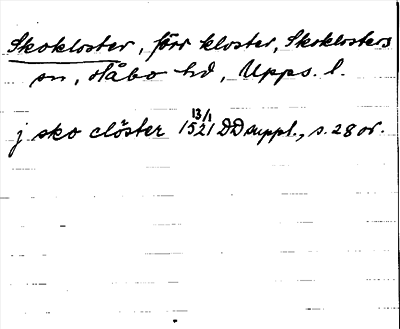 Skokloster, förr kloster, Skoklosters
sn, Håbo hd, Upps. l.
j sko clöster 13/1 1521 DD suppl., s. 28 or.